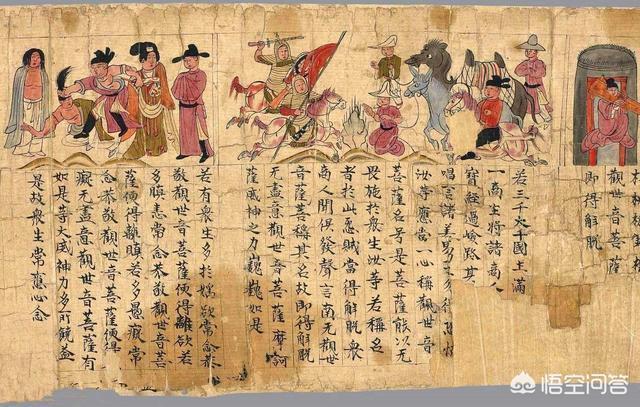 觀世音
即得解脫
若三千大千國土滿
一商主將諸商人
寶經過嶮路其
唱言諸善男
汝等應當一心稱觀世音
菩薩名号是菩薩能以无
畏施於衆生汝等若稱名
者於此怨賊當得解脫衆
商人聞俱發聲言南无觀世
音菩薩稱其名故即得解脫
无盡意觀世音菩薩摩訶
薩威神之力巍巍如是
若有衆生多於婬欲常念恭
敬觀世音菩薩便得離欲若
多瞋恚常念恭敬觀世音菩
薩便得離瞋若多愚癡常
念恭敬觀世音菩薩便得
癡无盡意觀世音菩薩有
如是等大威神力多所饒益
是故衆生常應心念
悟空问答